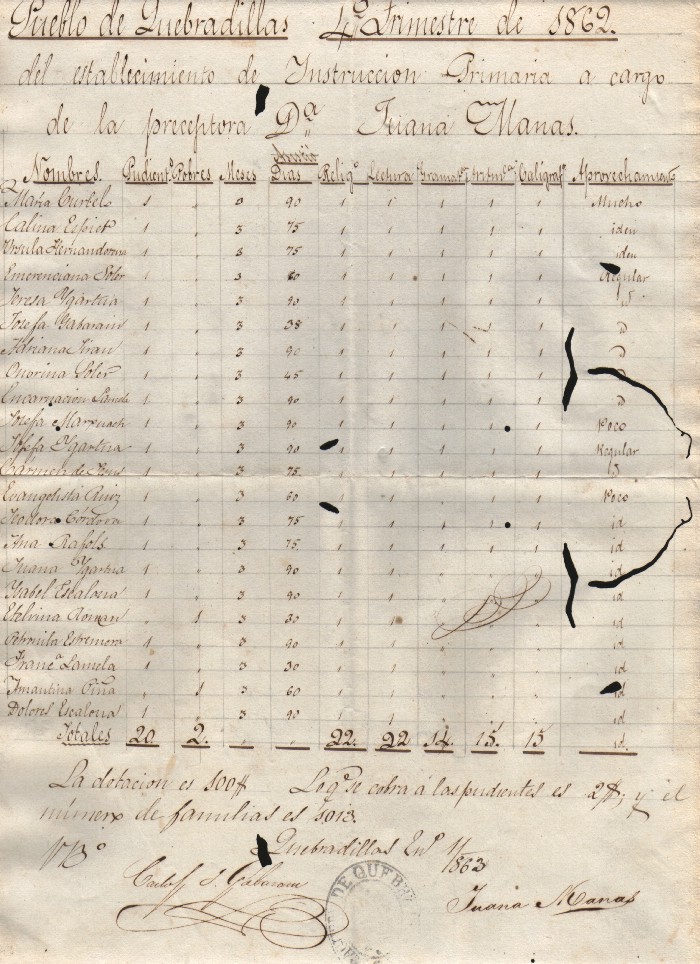 Pueblo de Quebradillas 4º Trimestre de 1862.
del establecimiento de Instruccion Primaria a cargo
de la preceptora Dª Juana Manas.
Nombres. Pudient.s Pobres Meses Dias Religº Lectura Gramatª Aritmª Caligrafª Aprovechamiento
Maria Curbelo 1 " 3 90 1 1 1 1 1 Mucho
Calina Espiet 1 " 3 75 1 1 1 1 1 iden
Ursula Hernandorena 1 " 3 75 1 1 1 1 1 iden
Emerenciana Soler 1 " 3 80 1 1 1 1 1 Regular
Teresa Ygartua 1 " 3 90 1 1 1 1 1 id
Josefa Gabarain 1 " 3 38 1 1 1 1 1 id
Adriana Jiran 1 " 3 90 1 1 1 1 1
Onorina Soler 1 " 3 45 1 1 1 1 1
Encarnacion Lamela 1 " 3 90 1 1 1 1 1
Josefa Marznach 1 " 3 90 1 1 1 1 1 Poco
Josefa Ygartua 1 " 3 90 1 1 1 1 1 Regular
Carmen de 1 " 3 75 1 1 1 1 1 id
Evangelista Ruiz 1 " 3 60 1 1 " 1 1 Poco
Isodora Córdova 1 " 3 75 1 1 1 1 1 id
Ana Rafols 1 " 3 75 1 1 1 1 1 id
Juana Ygartua 1 " 3 90 1 1 " " " id
Ysabel Escalona 1 " 3 90 1 1 " " " id
Etelvina Roman " 1 3 30 1 1 " " " id
Petronila Estremera 1 " 3 90 1 1 " " " id
Francª Lamela 1 " 3 30 1 1 " " " id
Imantina Piña " 1 3 60 1 1 " " " id
Dolores Escalona 1 " 3 90 1 1 " " " id
Totales 20 2. " " 22. 22 14. 15 15 id.
La dotacion es 100 Lo qº se cobra á las pudientes es 2 y el
numero de familias es 1013
Quebradillas Enº 1/1863
VºBº
Carlos J. Gabarain
Juana Manas
DE QUEB